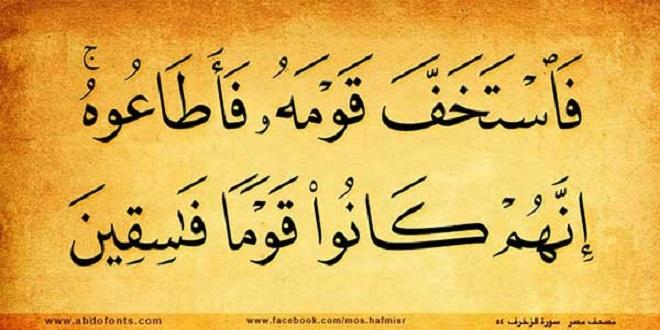 فَٱسْتَخَفَّ قَوْمَهُۥ فَأَطَاعُوهُۚ
إِنَّهُمْ كَانُوا۟ قَوْمًا فَـٰسِقِينَ
www.abdofonts.com www.facebook.com/mos.hafmisr مصحف مصر سورة الزخرف ٥٤